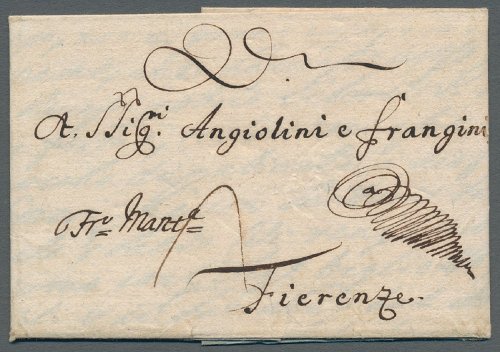 A. SSig.ri Angiolini e frangini
Fr.o Mant.a
Fierenze.